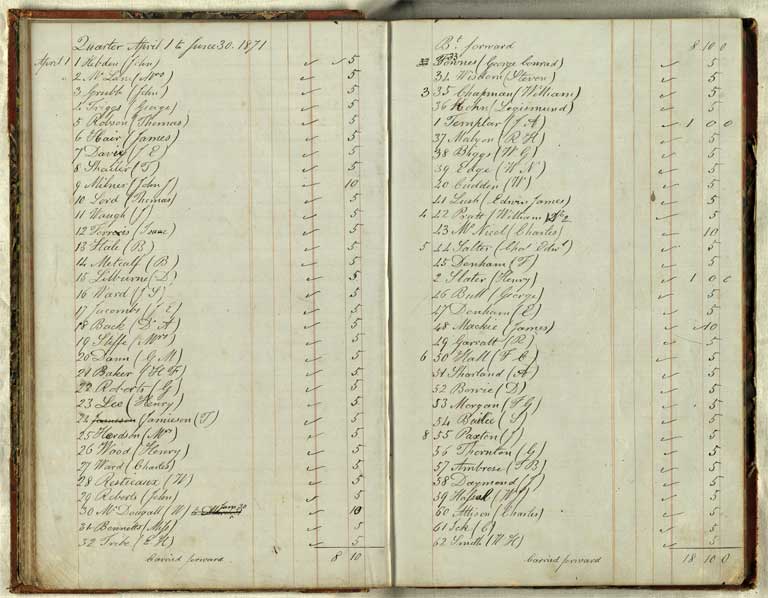 Quarter April 1 to June 30. 1871
April 1 1 Hebden (John) ✓ ✓ 5
2 McLean (Mrs) ✓ 5
3 Grubb (John) ✓ 5
4 Triggs (George) ✓ 5
5 Robson (Thomas) ✓ 5
6 Hair (James) ✓ 5
7 Davis (J E) ✓ 5
8 Shearer (T) ✓ 5
9 Milner (John J) ✓ 10
10 Lord (Thomas) ✓ 5
11 Waugh (J) ✓ 5
12 (Isaac) ✓ 5
13 Hale (B) ✓ 5
14 Metcalf (B) ✓ 5
15 Lilburne (D) ✓ 5
16 Ward (J S) ✓ 5
17 Jacombs (J E) ✓ 5
18 Back (Dr A) ✓ 5
19 (Mrs) ✓ 5
20 Dann (G M) ✓ 5
21 Baker (H F) ✓ 5
22 Roberts (G) ✓ 5
23 Lee (Henry) ✓ 5
24 Jamieson (T) ✓ 5
25 (Mrs) ✓ 5
26 Wood (Henry) ✓ 5
27 Ward (Charles) ✓ 5
28 Resticaux (H) ✓ 5
29 Roberts (John) ✓ 5
30 McDougall (W) June 30 ✓ 10
31 Bennetts (Miss) ✓ 5
32 Tribe (E H) ✓ 5
Carried forward 8 10
Bt. forward 8 10 0
33 Downes (George Conrad) ✓ 5
34 Wisdom (Steven) ✓ 5
3 35 Chapman (William) ✓ 5
36 Kohn (Logismund) ✓ 5
1 Templar (J A) ✓ 1 0 0
37 Malyon (R H) ✓ 5
38 Biggs (W G) ✓ 5
39 Edge (W N) ✓ 5
40 Cudden (W) ✓ 5
41 Lush (Edwin James) ✓ 5
4 42 Pratt (William) ✓ 5
43 McNicol (Charles) ✓ 10
5 44 Salter (Chas Edwd) ✓ 5
45 Denham (F) ✓ 5
2 Slater (Henry) ✓ 1 0 0
46 Bull (George) ✓ 5
47 Denham (E) ✓ 5
48 Mackie (James) ✓ 10
49 Garratt (R) ✓ 5
6 50 Hall (F C) ✓ 5
51 Sharland (A) ✓ 5
52 Bowie (D) ✓ 5
53 Morgan (F G) ✓ 5
54 Bailie (S) ✓ 5
8 55 Paxton (J) ✓ 5
56 Thornton (G) ✓ 5
57 Ambrose (F B) ✓ 5
58 Daymond (J) ✓ 5
59 ✓ 5
60 (Charles) ✓ 5
61 (C) ✓ 5
62 Smith (H H) ✓ 5
Carried forward 18 10 0